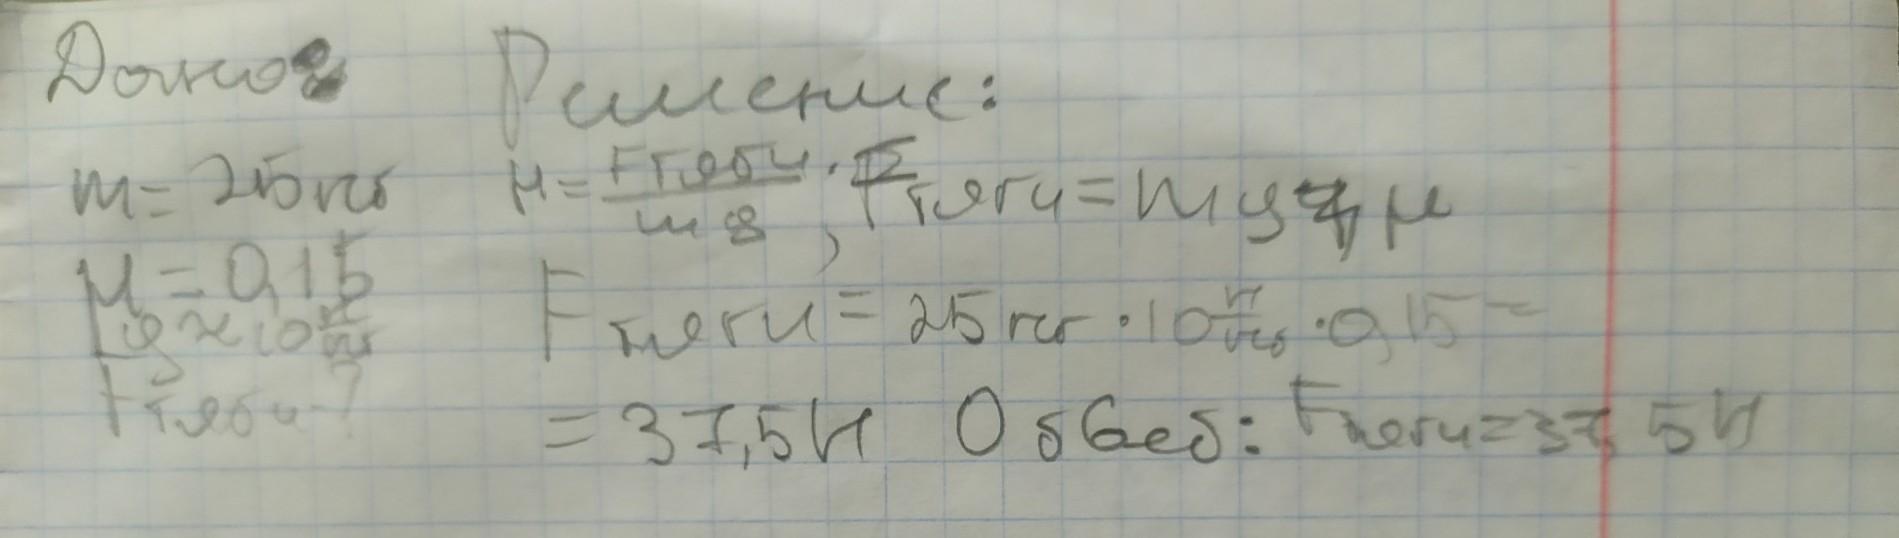 Дано:
Решение:
m = 25 кг
μ = 0,15
g ≈ 10 Н/кг
Fтяги - ?
μ = Fтяги / mg, Fтяги = mg μ
Fтяги = 25 кг · 10 Н/кг · 0,15 =
= 37,5 Н Ответ: Fтяги = 37,5 Н